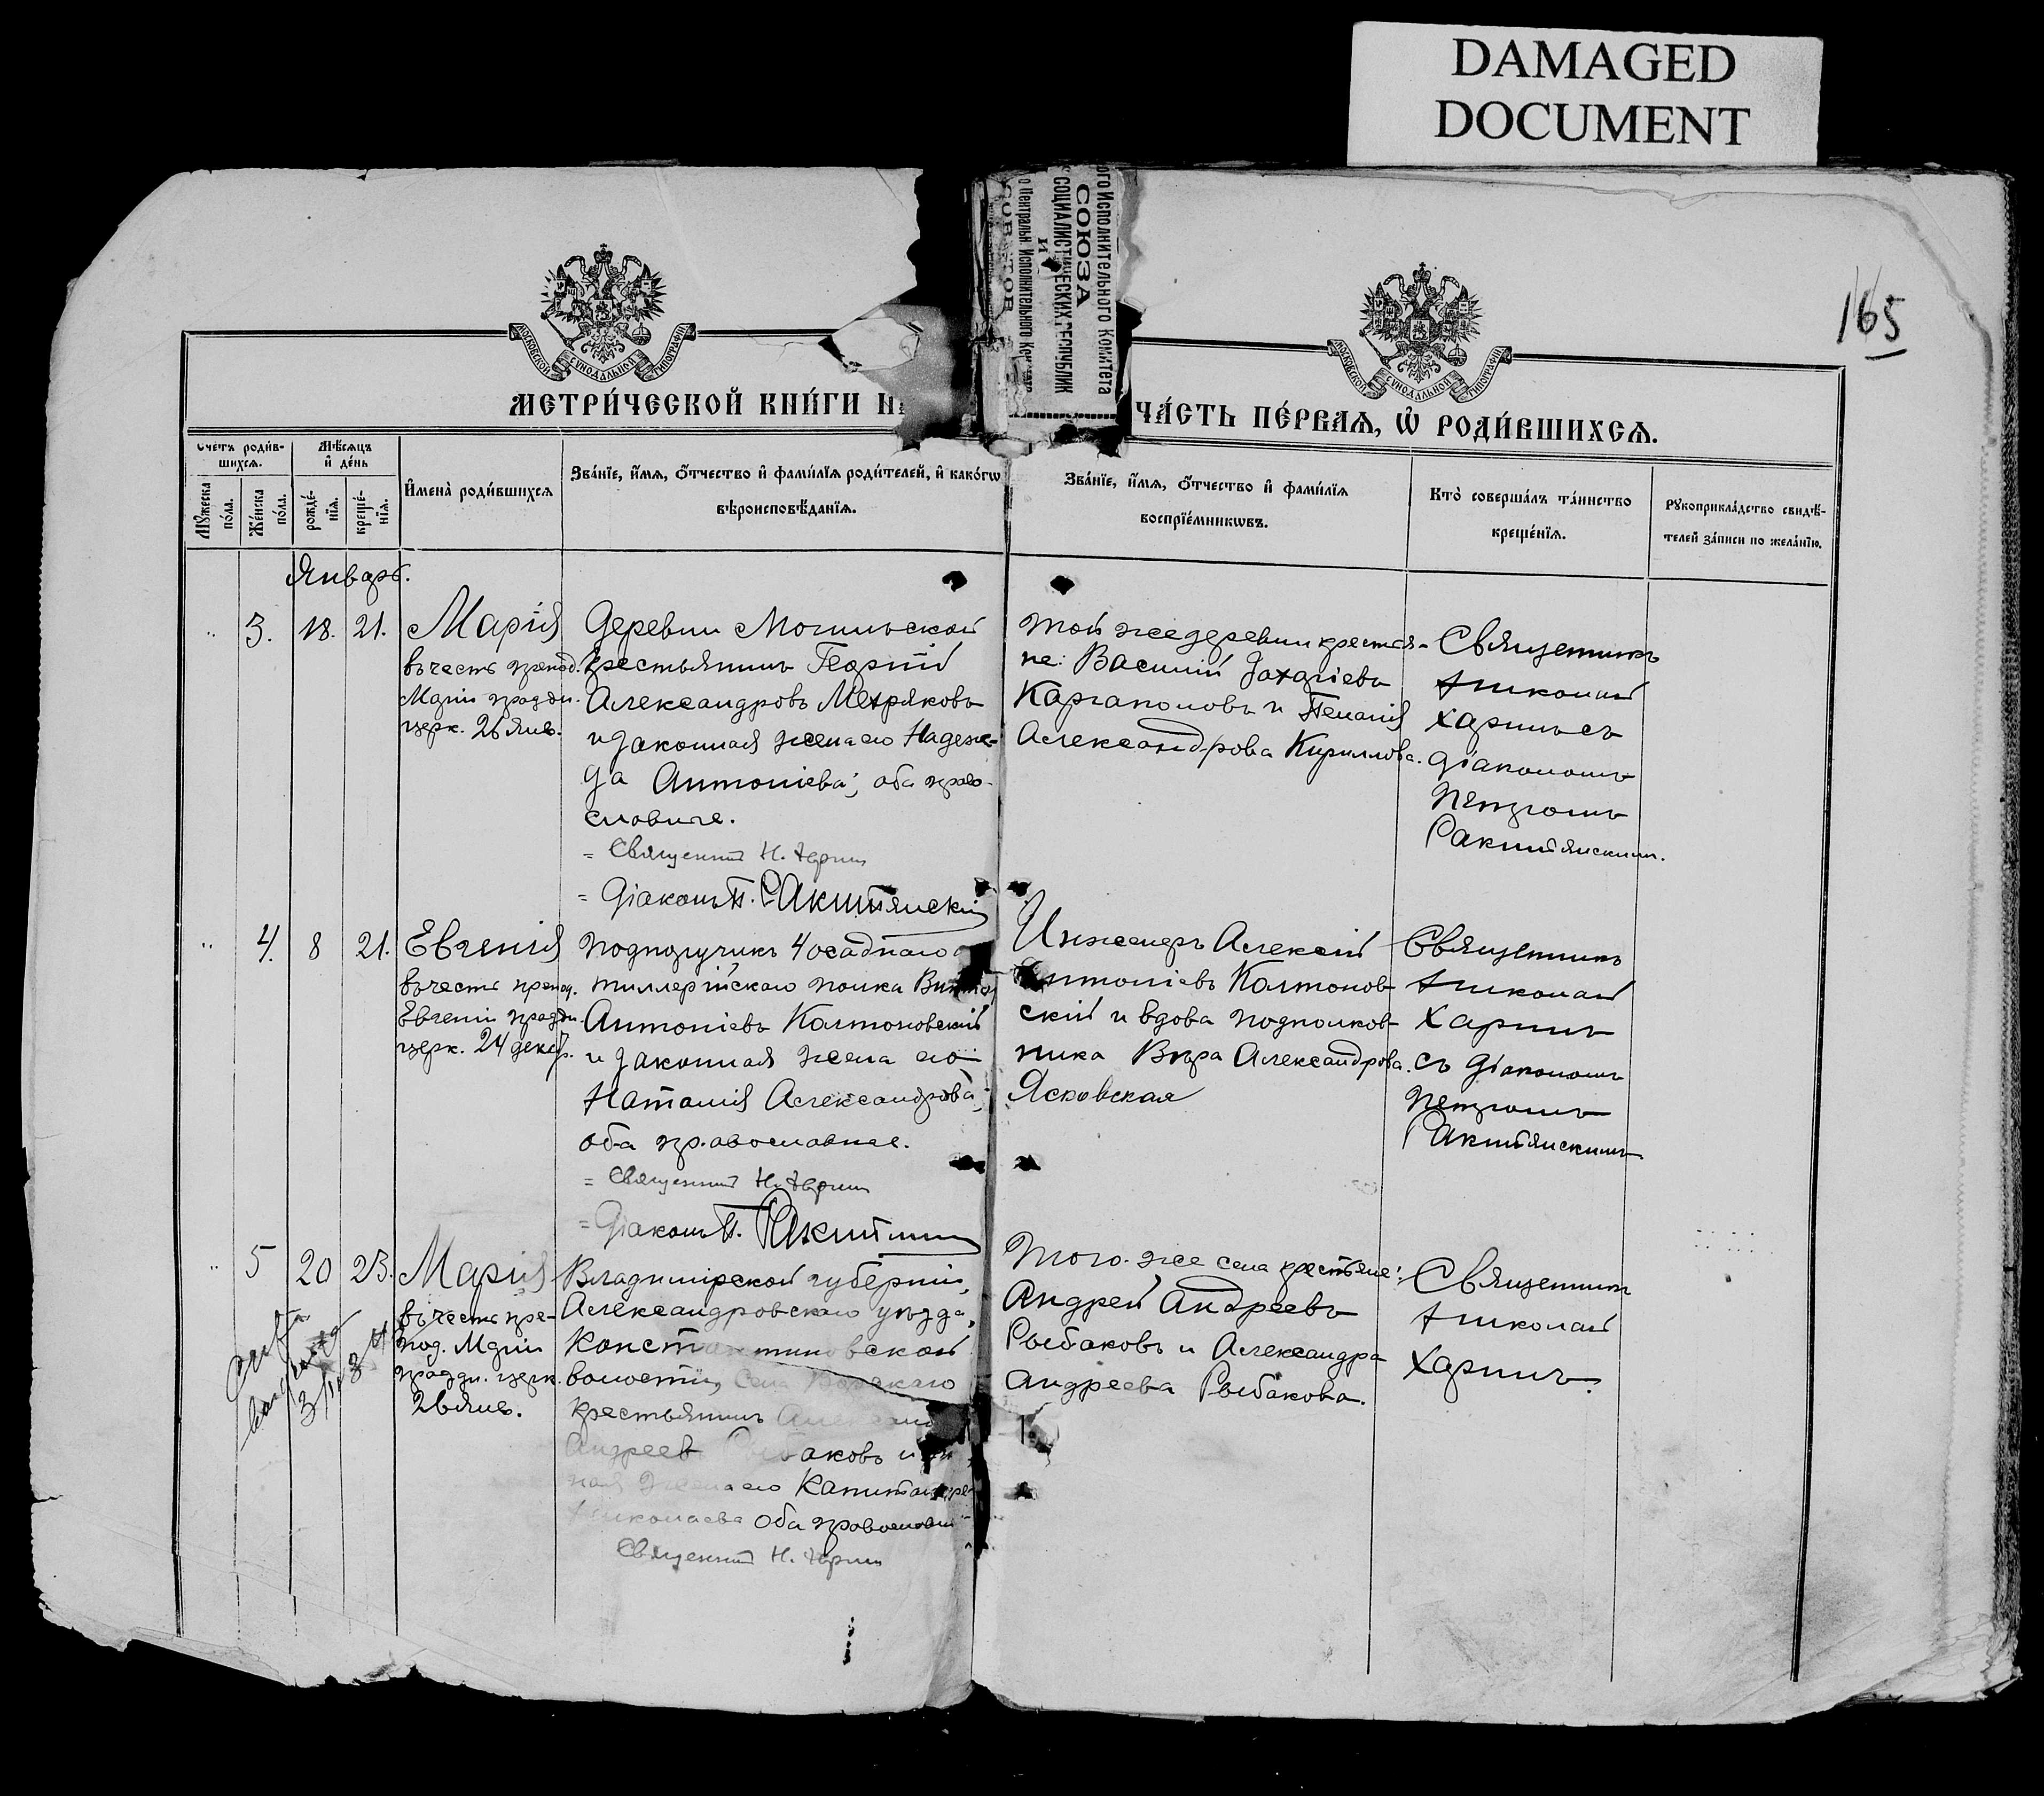 DAMAGED
DOCUMENT
165
ого Исполнительного Комитета
СОЮЗА
СОЦИАЛИСТИЧЕСКИХ РЕСПУБЛИК
и
о Центральн. Исполнительного
МОСКОВСКОЙ СУНОДАЛЬНОЙ ТИПОГРАФІИ
МОСКОВСКОЙ СУНОДАЛЬНОЙ ТИПОГРАФІИ
МЕТРИ́ЧЕСКОЙ КНИ́ГИ НА
ЧА́СТЬ ПЕ́РВАѦ, Ѿ РОДИ́ВШИХСѦ.
Счетъ роди́в-
шихсѧ.
Мѣ́сѧцъ
и҆ де́нь
Мꙋ́жеска
по́ла.
Же́нска
по́ла.
рожде́-
нїѧ.
креще́-
нїѧ.
И҆мена̀ роди́вшихсѧ
Зва́нїе, и҆́мѧ, ѻ҆́тчество и҆ фами́лїѧ роди́телей, и҆ како́гѡ
вѣроисповѣ́данїѧ.
Зва́нїе, и҆́мѧ, ѻ҆́тчество и҆ фами́лїѧ
воспрїе́мникѡвъ.
Кто̀ соверша́лъ та́инство
креще́нїѧ.
Рꙋкоприкла́дство свидѣ́-
телей за́писи по жела́нїю.
Январь.
3. 18. 21. Марія
въ честь препод.
Маріи праздн.
церк. 26 янв.
Деревни Могильской
крестьянинъ Георгій
Александровъ Метряковъ
и законная жена его Надеж-
да Антоніева; оба право-
славные.
= Священник Н. Харин
= Діаконъ П. Ракитянскій
той же деревни крестья-
не: Василій Захаріевъ
Каргаполовъ и Пелагія
Александрова Кириллова.
Священникъ
Николай
Харинъ съ
діакономъ
Петромъ
Ракитянскимъ.
4. 8 21. Евгенія
въ честь препод.
Евгеніи праздн.
церк. 24 декабр.
Подпоручикъ 4 осаднаго
тиллерійскаго полка
Антоніевъ Колтоновскій
и законная жена его
Наталія Александрова;
оба православные.
= Священник Н. Харин
= Діаконъ П. Ракитянскій
Инженеръ Алексѣй
Антоніевъ Колтонов-
скій и вдова подполков-
ника Вѣра Александрова
Ясковская
Священникъ
Николай
Харинъ
съ діакономъ
Петромъ
Ракитянскимъ
5 20 23. Марія
въ честь пре-
под. Маріи
праздн. церк.
26 янв.
Владимірской губерніи,
Александровскаго уѣзда,
Константиновской
волости, села
крестьянинъ
Андреев Рыбаковъ и
ная жена его Капитолина
Николаева оба православн
Священник Н. Харин
Того-же села крестьяне:
Андрей Андреевъ
Рыбаковъ и Александра
Андреева Рыбакова.
Священникъ
Николай
Харинъ.